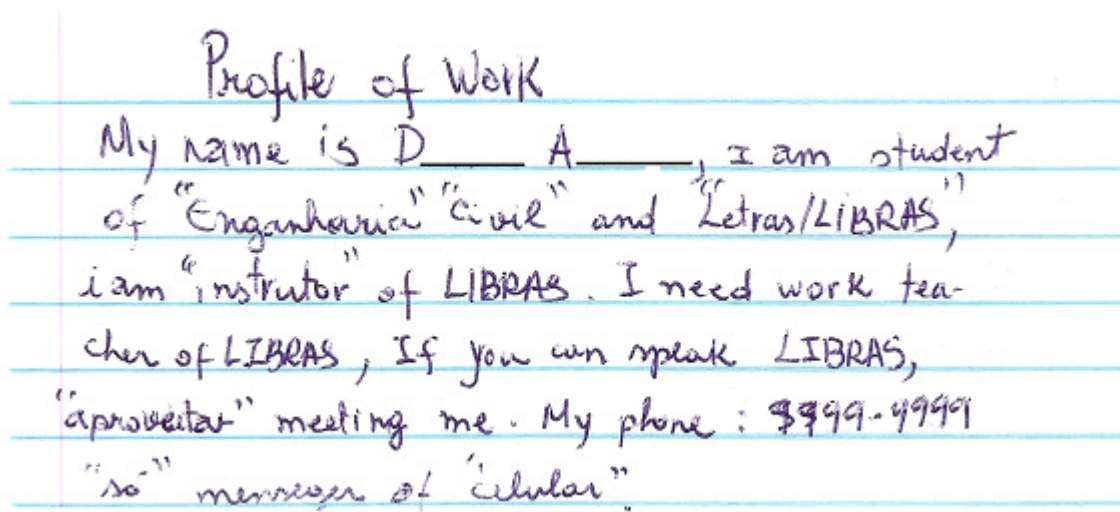 Profile of Work
My name is D____ A____, I am student
of "Enganharia" "Civil" and "Letras/LIBRAS",
i am "instrutor" of LIBRAS. I need work tea-
cher of LIBRAS, If you can speak LIBRAS,
"aproveitar" meeting me. My phone: 9999-9999
"só" of "celular".